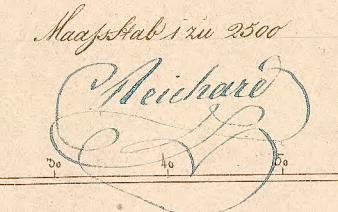 Maaßstab 1 zu 2500
Reichard
30 40 50